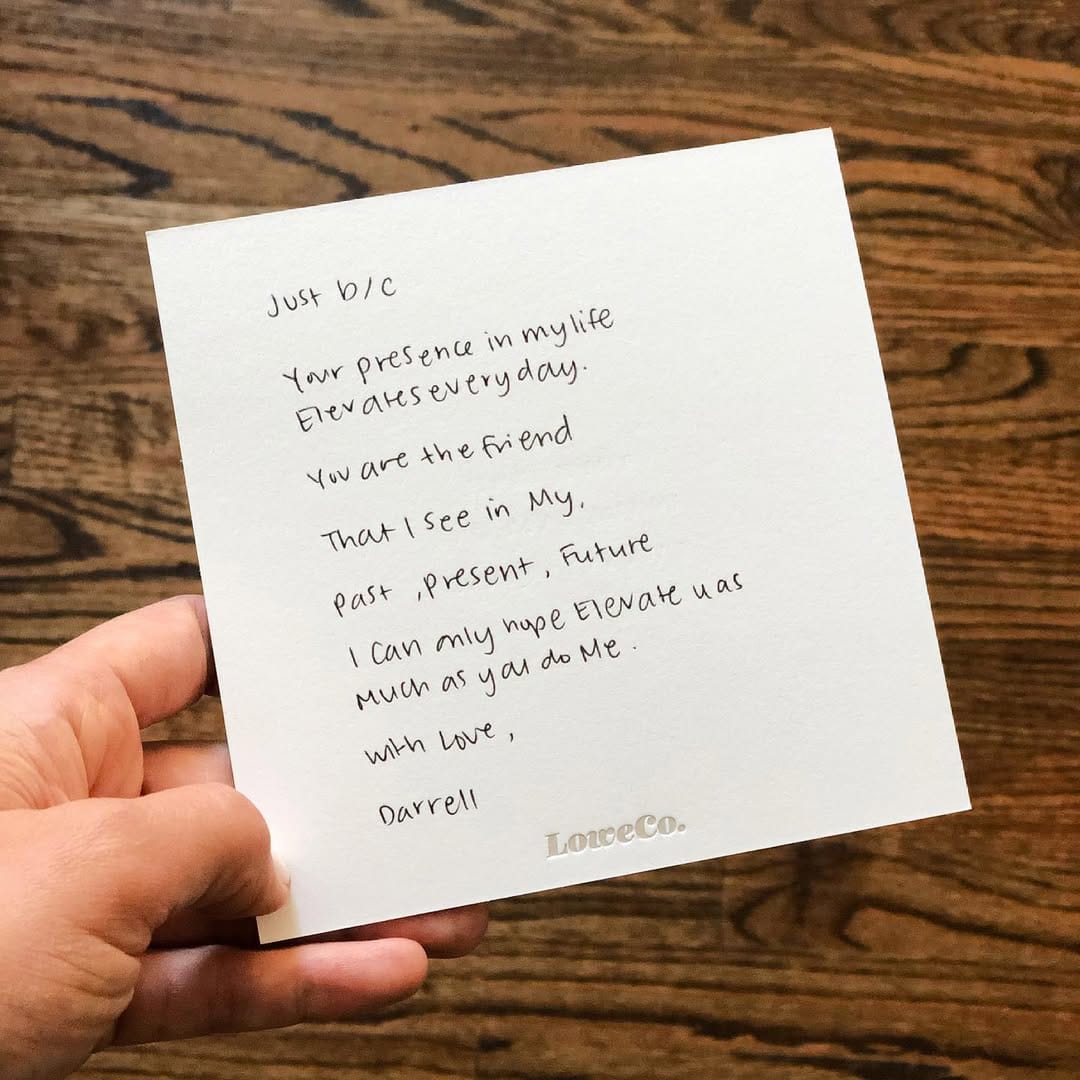 Just b/c
Your presence in my life
Elevates every day.
You are the friend
That I see in My,
past , present , Future
I Can only hope Elevate u as
Much as you do Me .
with Love ,
Darrell
LoweCo.